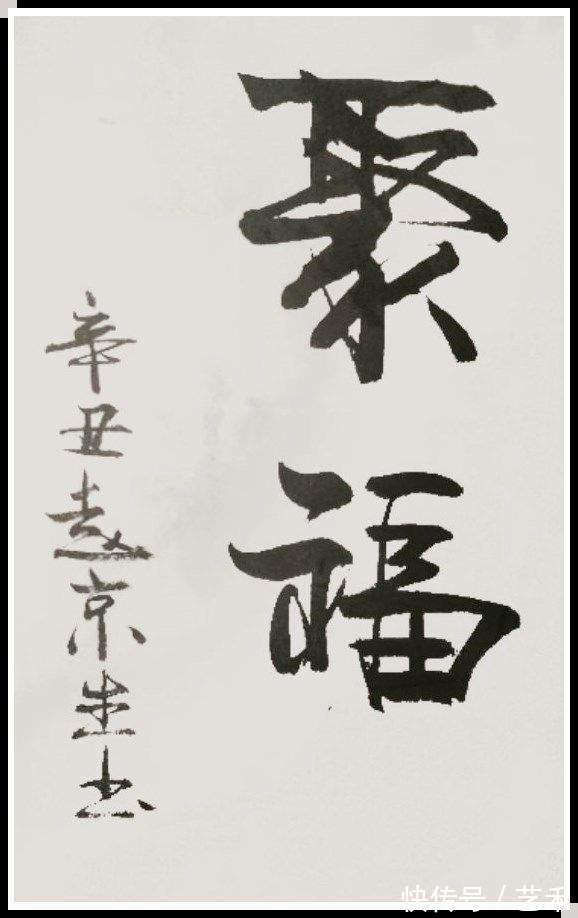 聚福
辛丑赵京生书
快传号/艺